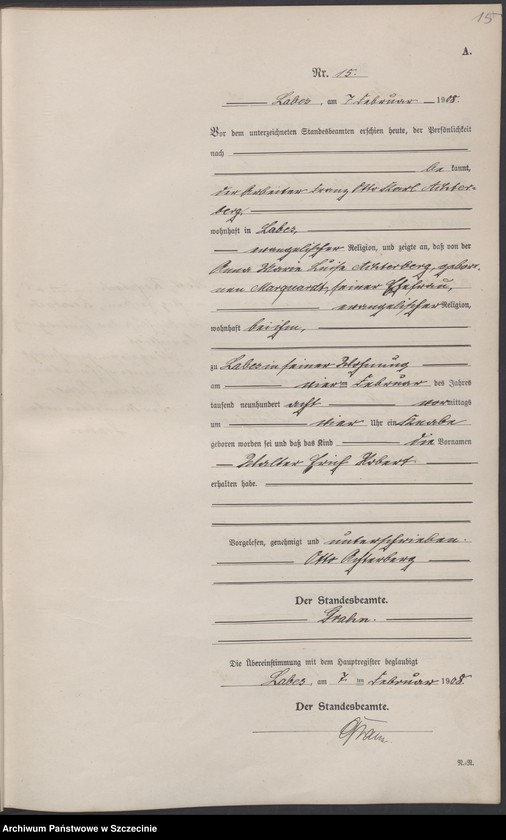 15
A.
Nr. 15.
Labes, am 7 Februar 1908.
Vor dem unterzeichneten Standesbeamten erschien heute, der Persönlichkeit
nach
be kannt,
der Arbeiter Franz Otto Karl Achter-
berg,
wohnhaft in Labes,
evangelischer Religion, und zeigte an, daß von der
Anna Marie Luise Achterberg, gebore-
nen Marquardt, seiner Ehefrau,
evangelischer Religion,
wohnhaft bei ihm,
zu Labes in seiner Wohnung
am vierten Februar des Jahres
tausend neunhundert acht vormittags
um vier Uhr ein Knabe
geboren worden sei und daß das Kind die Vornamen
Walter Erich Robert
erhalten habe.
Vorgelesen, genehmigt und unterschrieben.
Otto Achterberg
Der Standesbeamte.
Grahn.
Die Übereinstimmung mit dem Hauptregister beglaubigt
Labes, am 7 ten Februar 1908.
Der Standesbeamte.
Grahn.
N.-R.
Archiwum Państwowe w Szczecinie